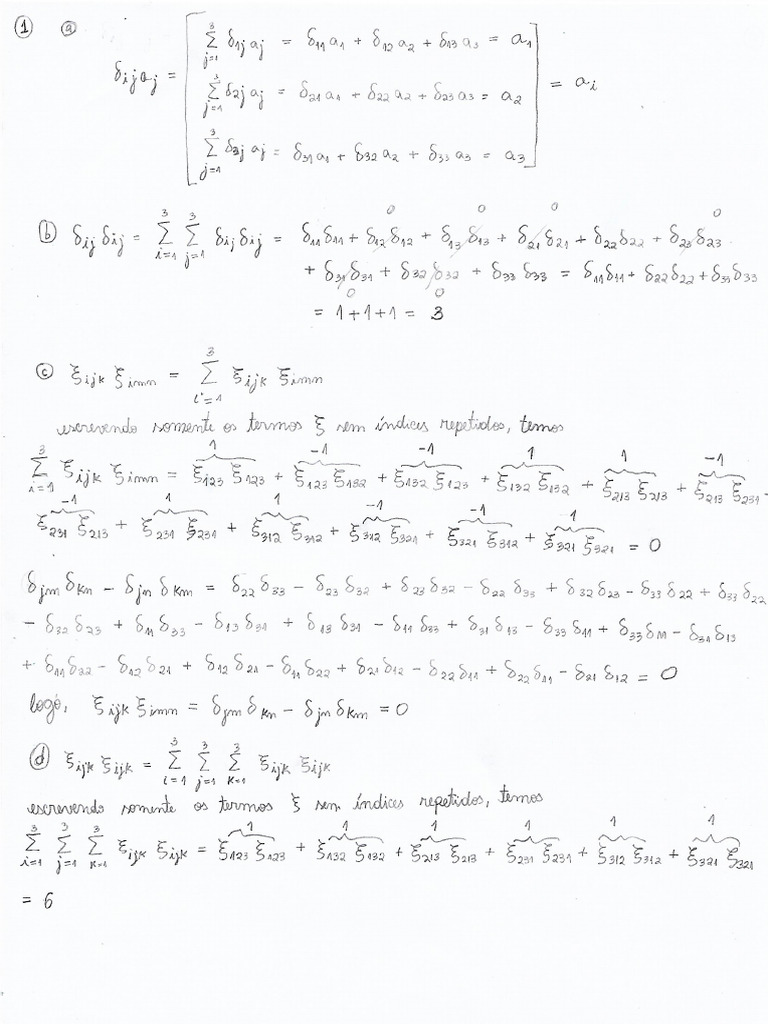 ① ⓐ
δij aj = [ Σ(j=1→3) δ1j aj = δ11 a1 + δ12 a2 + δ13 a3 = a1
Σ(j=1→3) δ2j aj = δ21 a1 + δ22 a2 + δ23 a3 = a2
Σ(j=1→3) δ3j aj = δ31 a1 + δ32 a2 + δ33 a3 = a3 ] = ai
ⓑ δij δij = Σ(i=1→3) Σ(j=1→3) δij δij = δ11δ11 + δ12δ12 (0) + δ13δ13 (0) + δ21δ21 (0) + δ22δ22 + δ23δ23 (0)
+ δ31δ31 (0) + δ32δ32 (0) + δ33δ33 = δ11δ11 + δ22δ22 + δ33δ33
= 1+1+1 = 3
ⓒ ξijk ξimn = Σ(i=1→3) ξijk ξimn
escrevendo somente os termos ξ sem índices repetidos, temos
Σ(i=1→3) ξijk ξimn = ξ123 ξ123 (1) + ξ123 ξ132 (-1) + ξ132 ξ123 (-1) + ξ132 ξ132 (1) + ξ213 ξ213 (1) + ξ213 ξ231 (-1) +
ξ231 ξ213 (-1) + ξ231 ξ231 (1) + ξ312 ξ312 (1) + ξ312 ξ321 (-1) + ξ321 ξ312 (-1) + ξ321 ξ321 (1) = 0
δjm δkn - δjn δkm = δ22 δ33 - δ23 δ32 + δ23 δ32 - δ22 δ33 + δ32 δ23 - δ33 δ22 + δ33 δ22
- δ32 δ23 + δ11 δ33 - δ13 δ31 + δ13 δ31 - δ11 δ33 + δ31 δ13 - δ33 δ11 + δ33 δ11 - δ31 δ13
+ δ11 δ22 - δ12 δ21 + δ12 δ21 - δ11 δ22 + δ21 δ12 - δ22 δ11 + δ22 δ11 - δ21 δ12 = 0
logo, ξijk ξimn = δjm δkn - δjn δkm = 0
ⓓ ξijk ξijk = Σ(i=1→3) Σ(j=1→3) Σ(k=1→3) ξijk ξijk
escrevendo somente os termos ξ sem índices repetidos, temos
Σ(i=1→3) Σ(j=1→3) Σ(k=1→3) ξijk ξijk = ξ123 ξ123 (1) + ξ132 ξ132 (1) + ξ213 ξ213 (1) + ξ231 ξ231 (1) + ξ312 ξ312 (1) + ξ321 ξ321 (1)
= 6